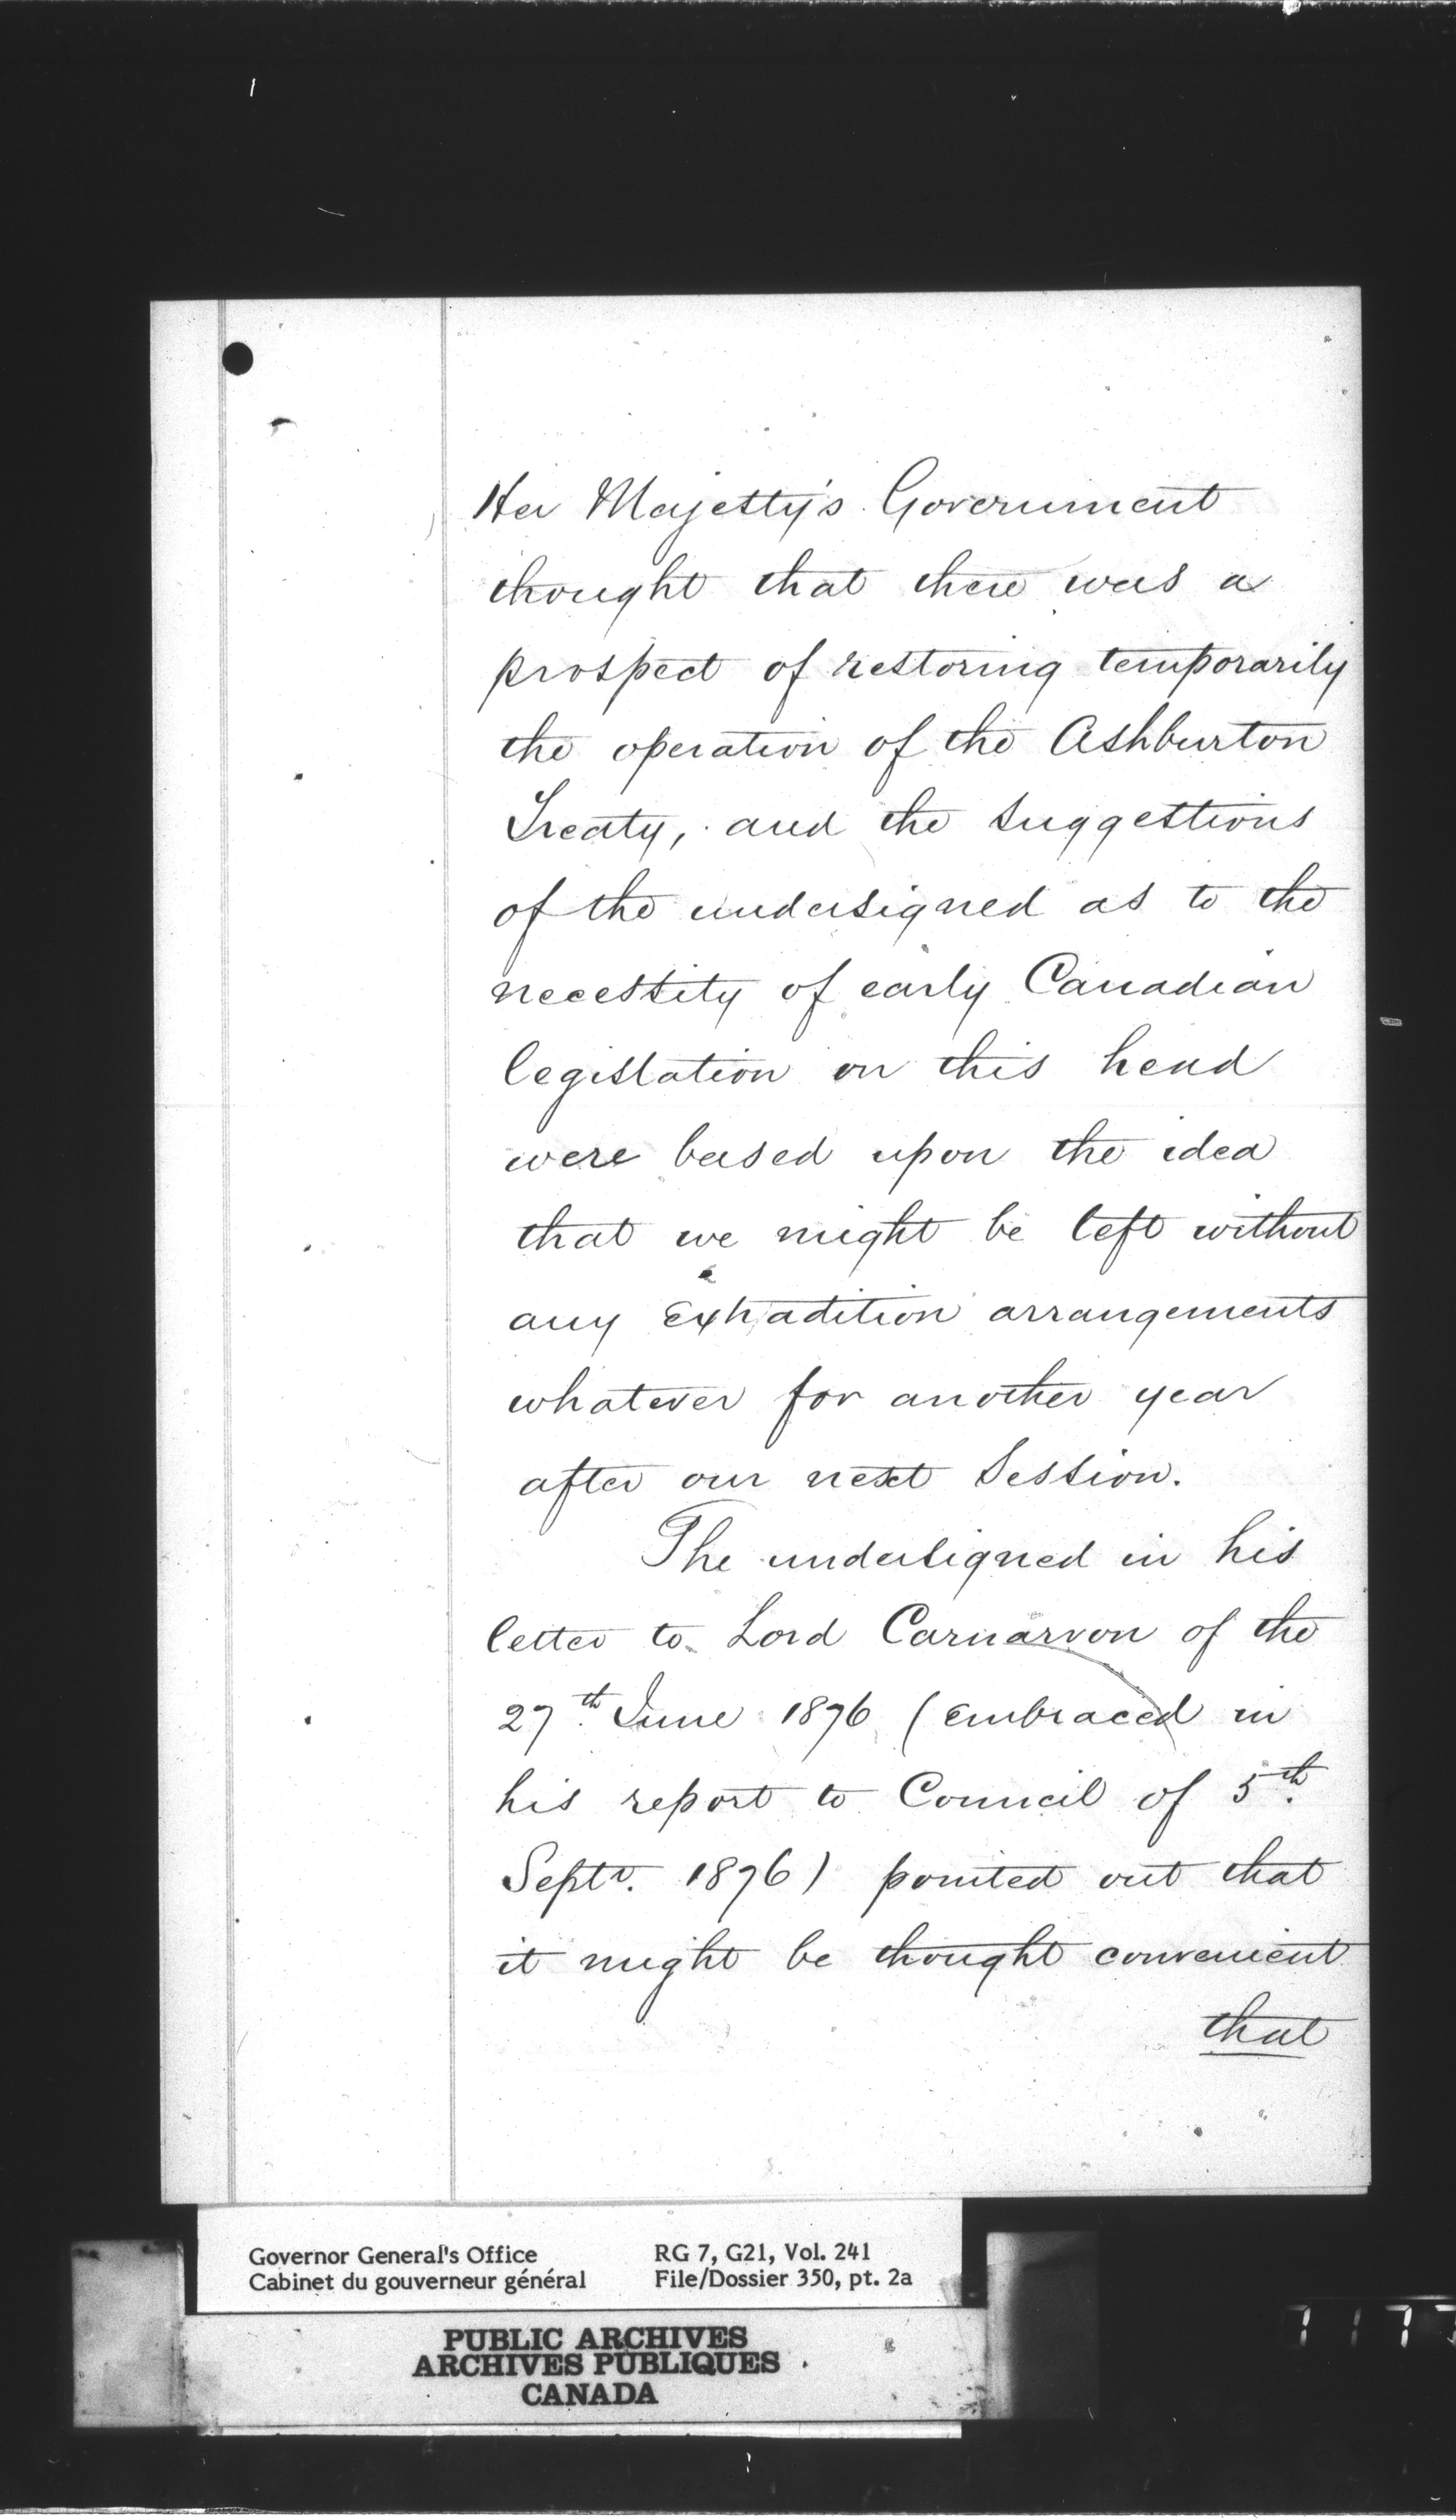 Her Majesty's Government
thought that there was a
prospect of restoring temporarily
the operation of the Ashburton
Treaty, and the suggestions
of the undersigned as to the
necessity of early Canadian
legislation on this head
were based upon the idea
that we might be left without
any Extradition arrangements
whatever for another year
after our next Session.
The undersigned in his
letter to Lord Carnarvon of the
27th. June 1876 (embraced in
his report to Council of 5th.
Septr. 1876) pointed out that
it might be thought convenient
that
Governor General's Office
Cabinet du gouverneur général
RG 7, G21, Vol. 241
File/Dossier 350, pt. 2a
PUBLIC ARCHIVES
ARCHIVES PUBLIQUES
CANADA